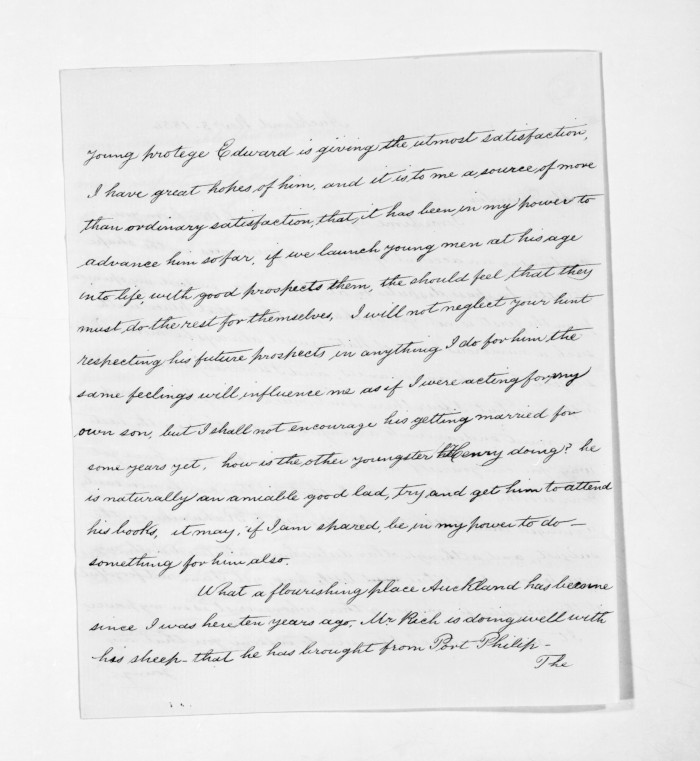 young protege Edward is giving the utmost satisfaction,
I have great hopes, of him, and it is, to me a, source, of more
than ordinary satisfaction, that, it has been, in my power to
advance him so far, if we launch young men at his age
into life, with good prospects them, the should feel that they
must, do the rest for themselves, I will not neglect your hint
respecting his future prospects, in anything I do for him the
same feelings will, influence me as if I were acting for, my
own son, but I shall not encourage his getting married for
some years yet, how is the other youngster Henry doing? he
is naturally an amiable good lad, try, and get him to attend
his books, it may, if I am spared, be in my power to do —
something for him also.
What a flourishing place Auckland has become
since I was here ten years ago, Mr Rich is doing well with
his sheep - that he has brought from Port Philip -
The